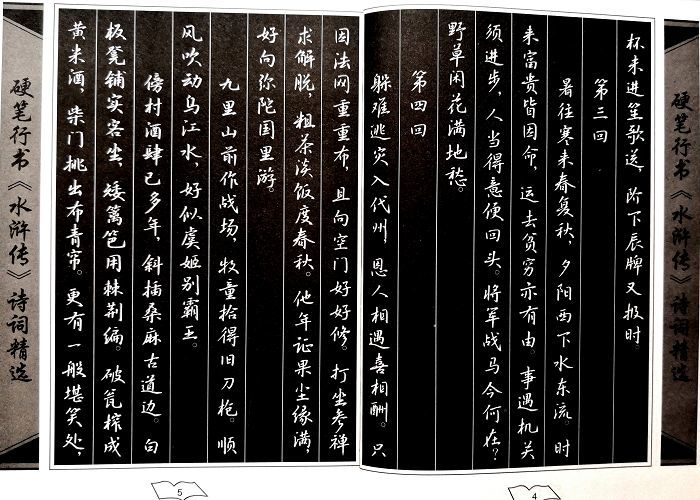 硬笔行书《水浒传》诗词精选
杯来进笙歌送，阶下辰牌又报时。
第三回
暑往寒来春复秋，夕阳西下水东流。时
来富贵皆因命，运去贫穷亦有由。事遇机关
须进步，人当得意便回头。将军战马今何在？
野草闲花满地愁。
第四回
躲难逃灾入代州，恩人相遇喜相酬。只
4
因法网重重布，且向空门好好修。打坐参禅
求解脱，粗茶淡饭度春秋。他年证果尘缘满，
好向弥陀国里游。
九里山前作战场，牧童拾得旧刀枪。顺
风吹动乌江水，好似虞姬别霸王。
傍村酒肆已多年，斜插桑麻古道边。白
板凳铺宾客坐，矮篱笆用棘荆编。破瓮榨成
黄米酒，柴门挑出布青帘。更有一般堪笑处，
硬笔行书《水浒传》诗词精选
5